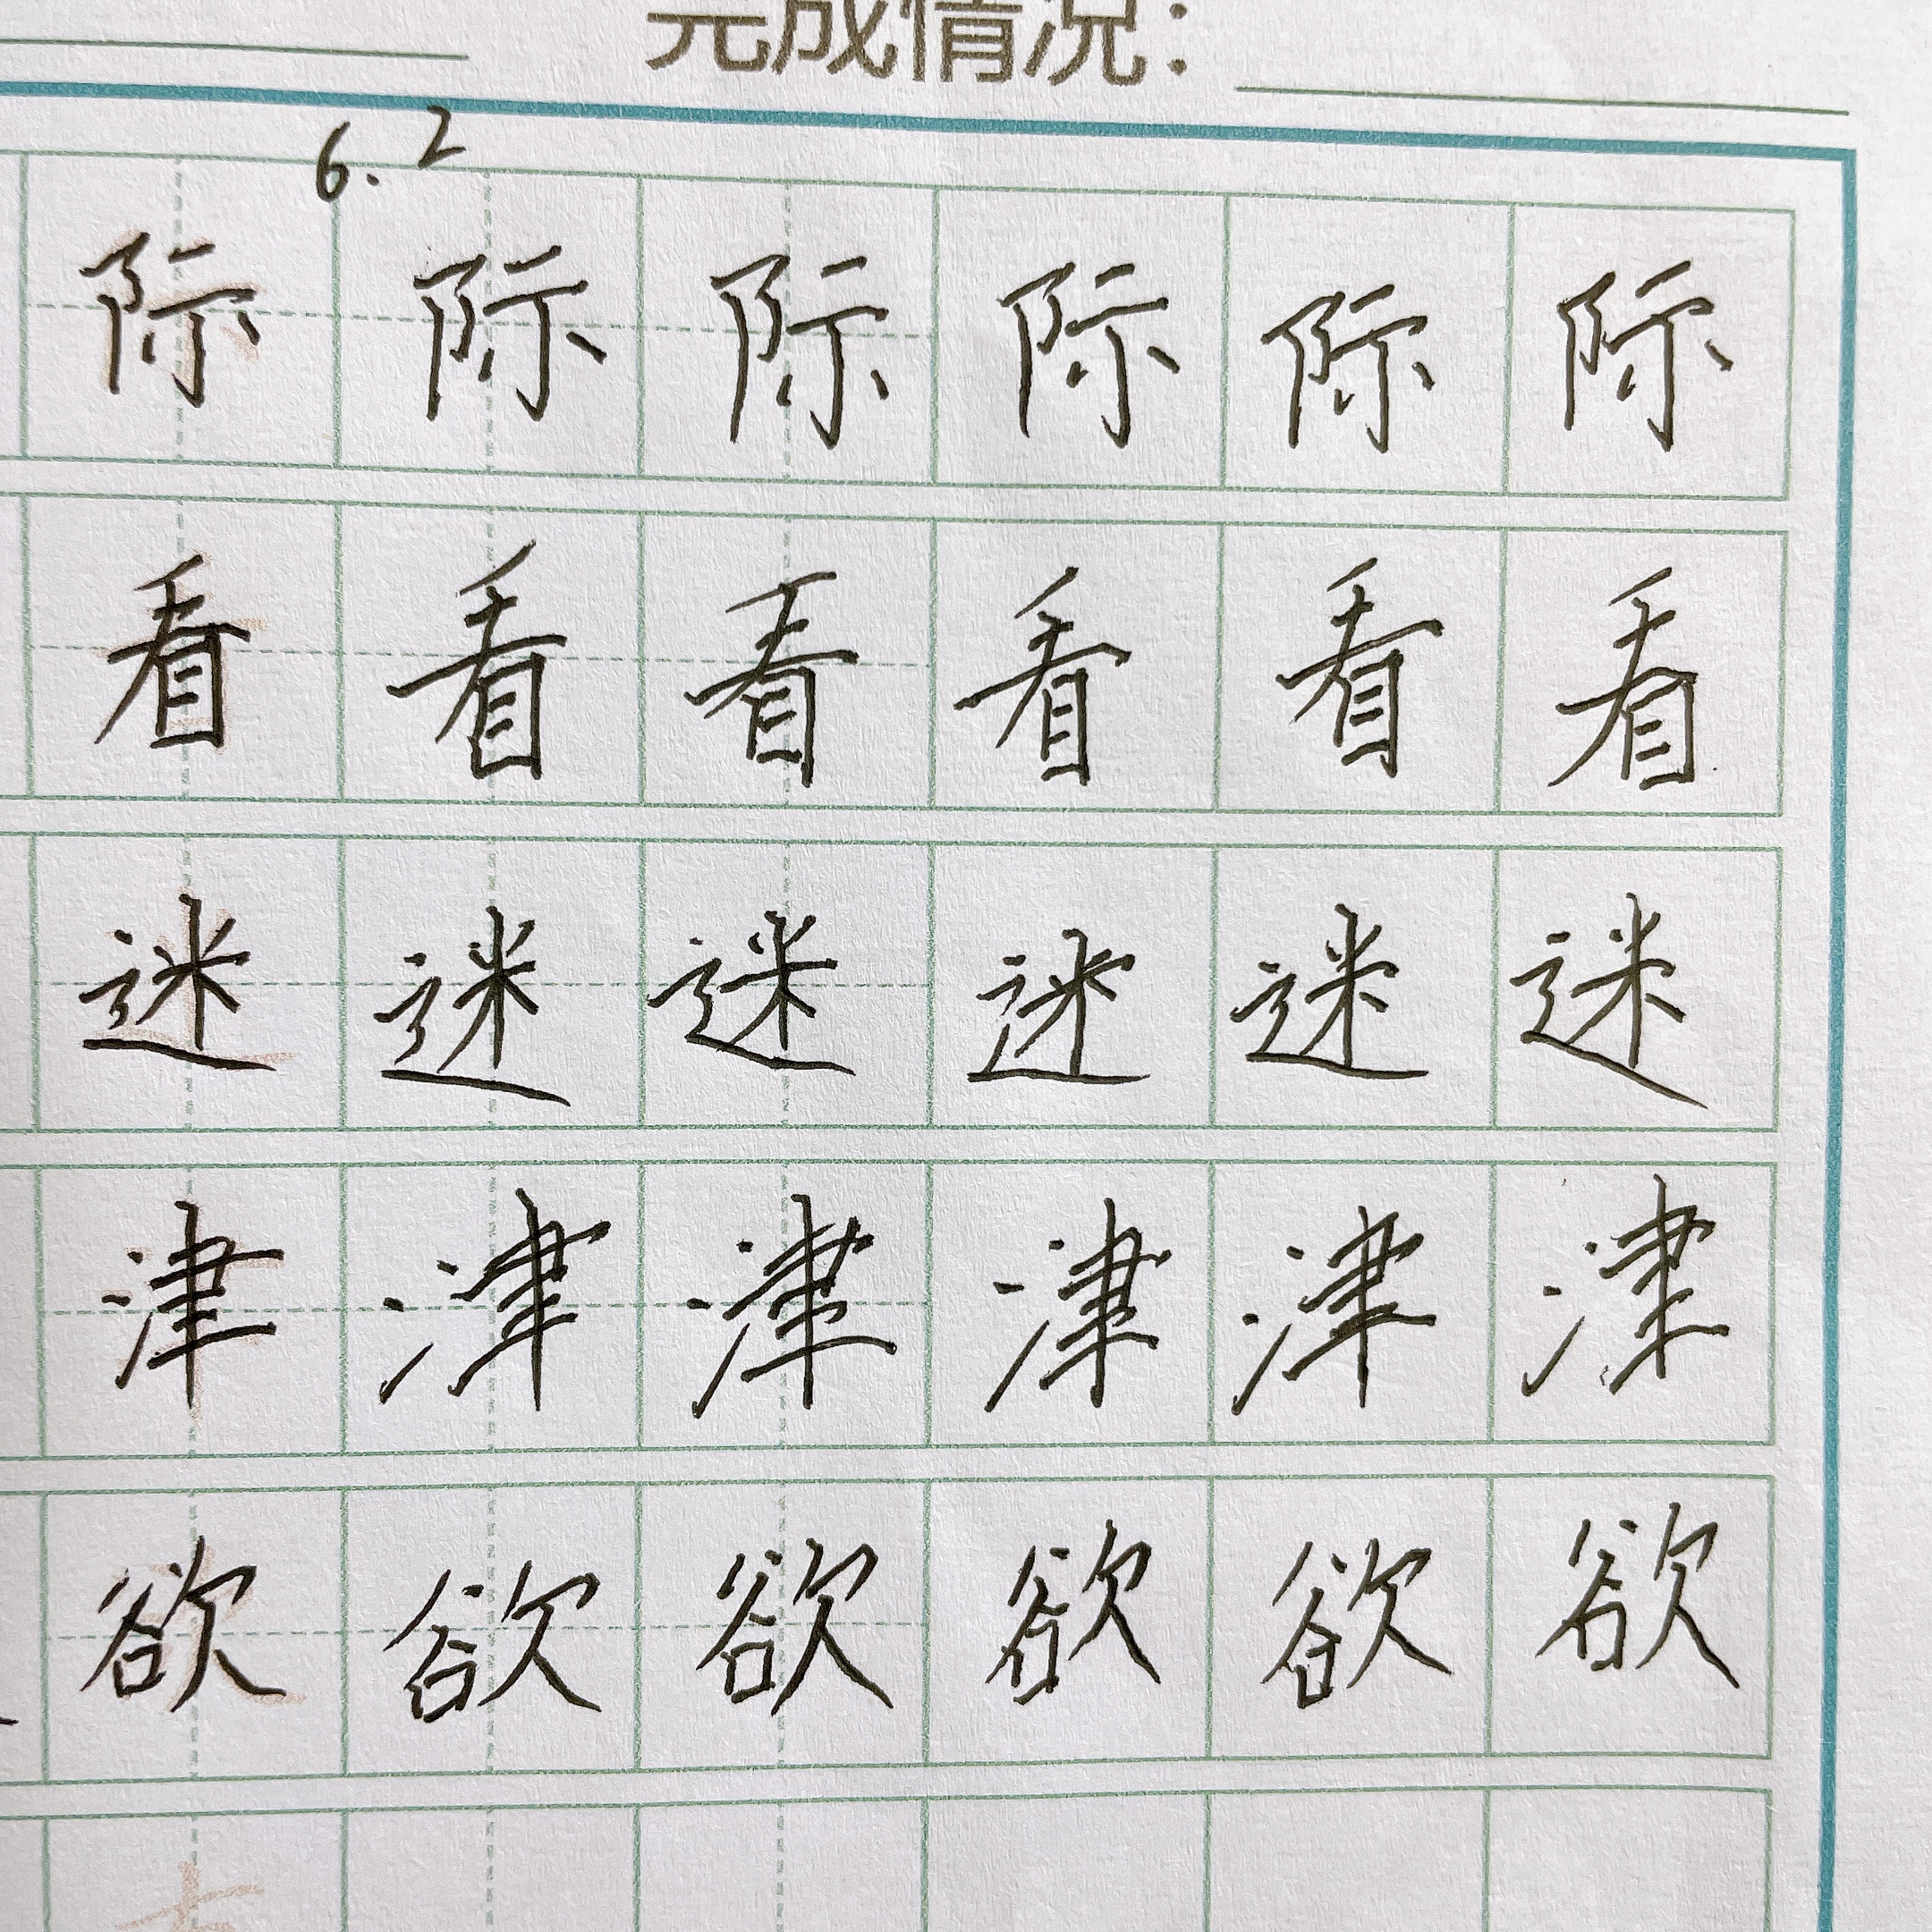 完成情况：
6.2
际 际 际 际 际 际
看 看 看 看 看 看
迷 迷 迷 迷 迷 迷
津 津 津 津 津 津
欲 欲 欲 欲 欲 欲